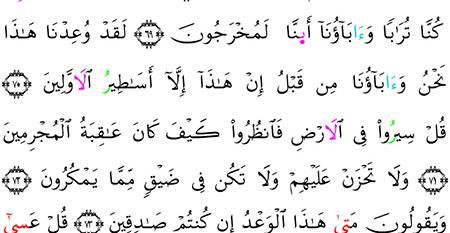 كُنَّا تُرَٰبًا وَءَابَآؤُنَآ أَئِنَّا لَمُخْرَجُونَ ٦٩ لَقَدْ وُعِدْنَا هَٰذَا
نَحْنُ وَءَابَآؤُنَا مِن قَبْلُ إِنْ هَٰذَآ إِلَّآ أَسَٰطِيرُ الَاوَّلِينَ ٧٠
قُلْ سِيرُوا۟ فِى الَارْضِ فَانظُرُوا۟ كَيْفَ كَانَ عَٰقِبَةُ الْمُجْرِمِينَ
٧١ وَلَا تَحْزَنْ عَلَيْهِمْ وَلَا تَكُن فِى ضَيْقٍ مِّمَّا يَمْكُرُونَ ٧٢
وَيَقُولُونَ مَتَىٰ هَٰذَا الْوَعْدُ إِن كُنتُمْ صَٰدِقِينَ ٧٣ قُلْ عَسَىٰٓ